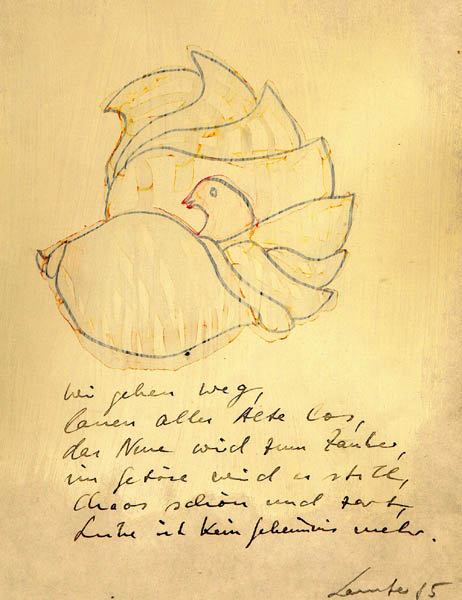 wir gehen weg,
lassen alles Alte los,
das Neue wird zum Zauber,
im Getöse wird es still,
Chaos schön und zart,
Liebe ist kein Geheimnis mehr.
85